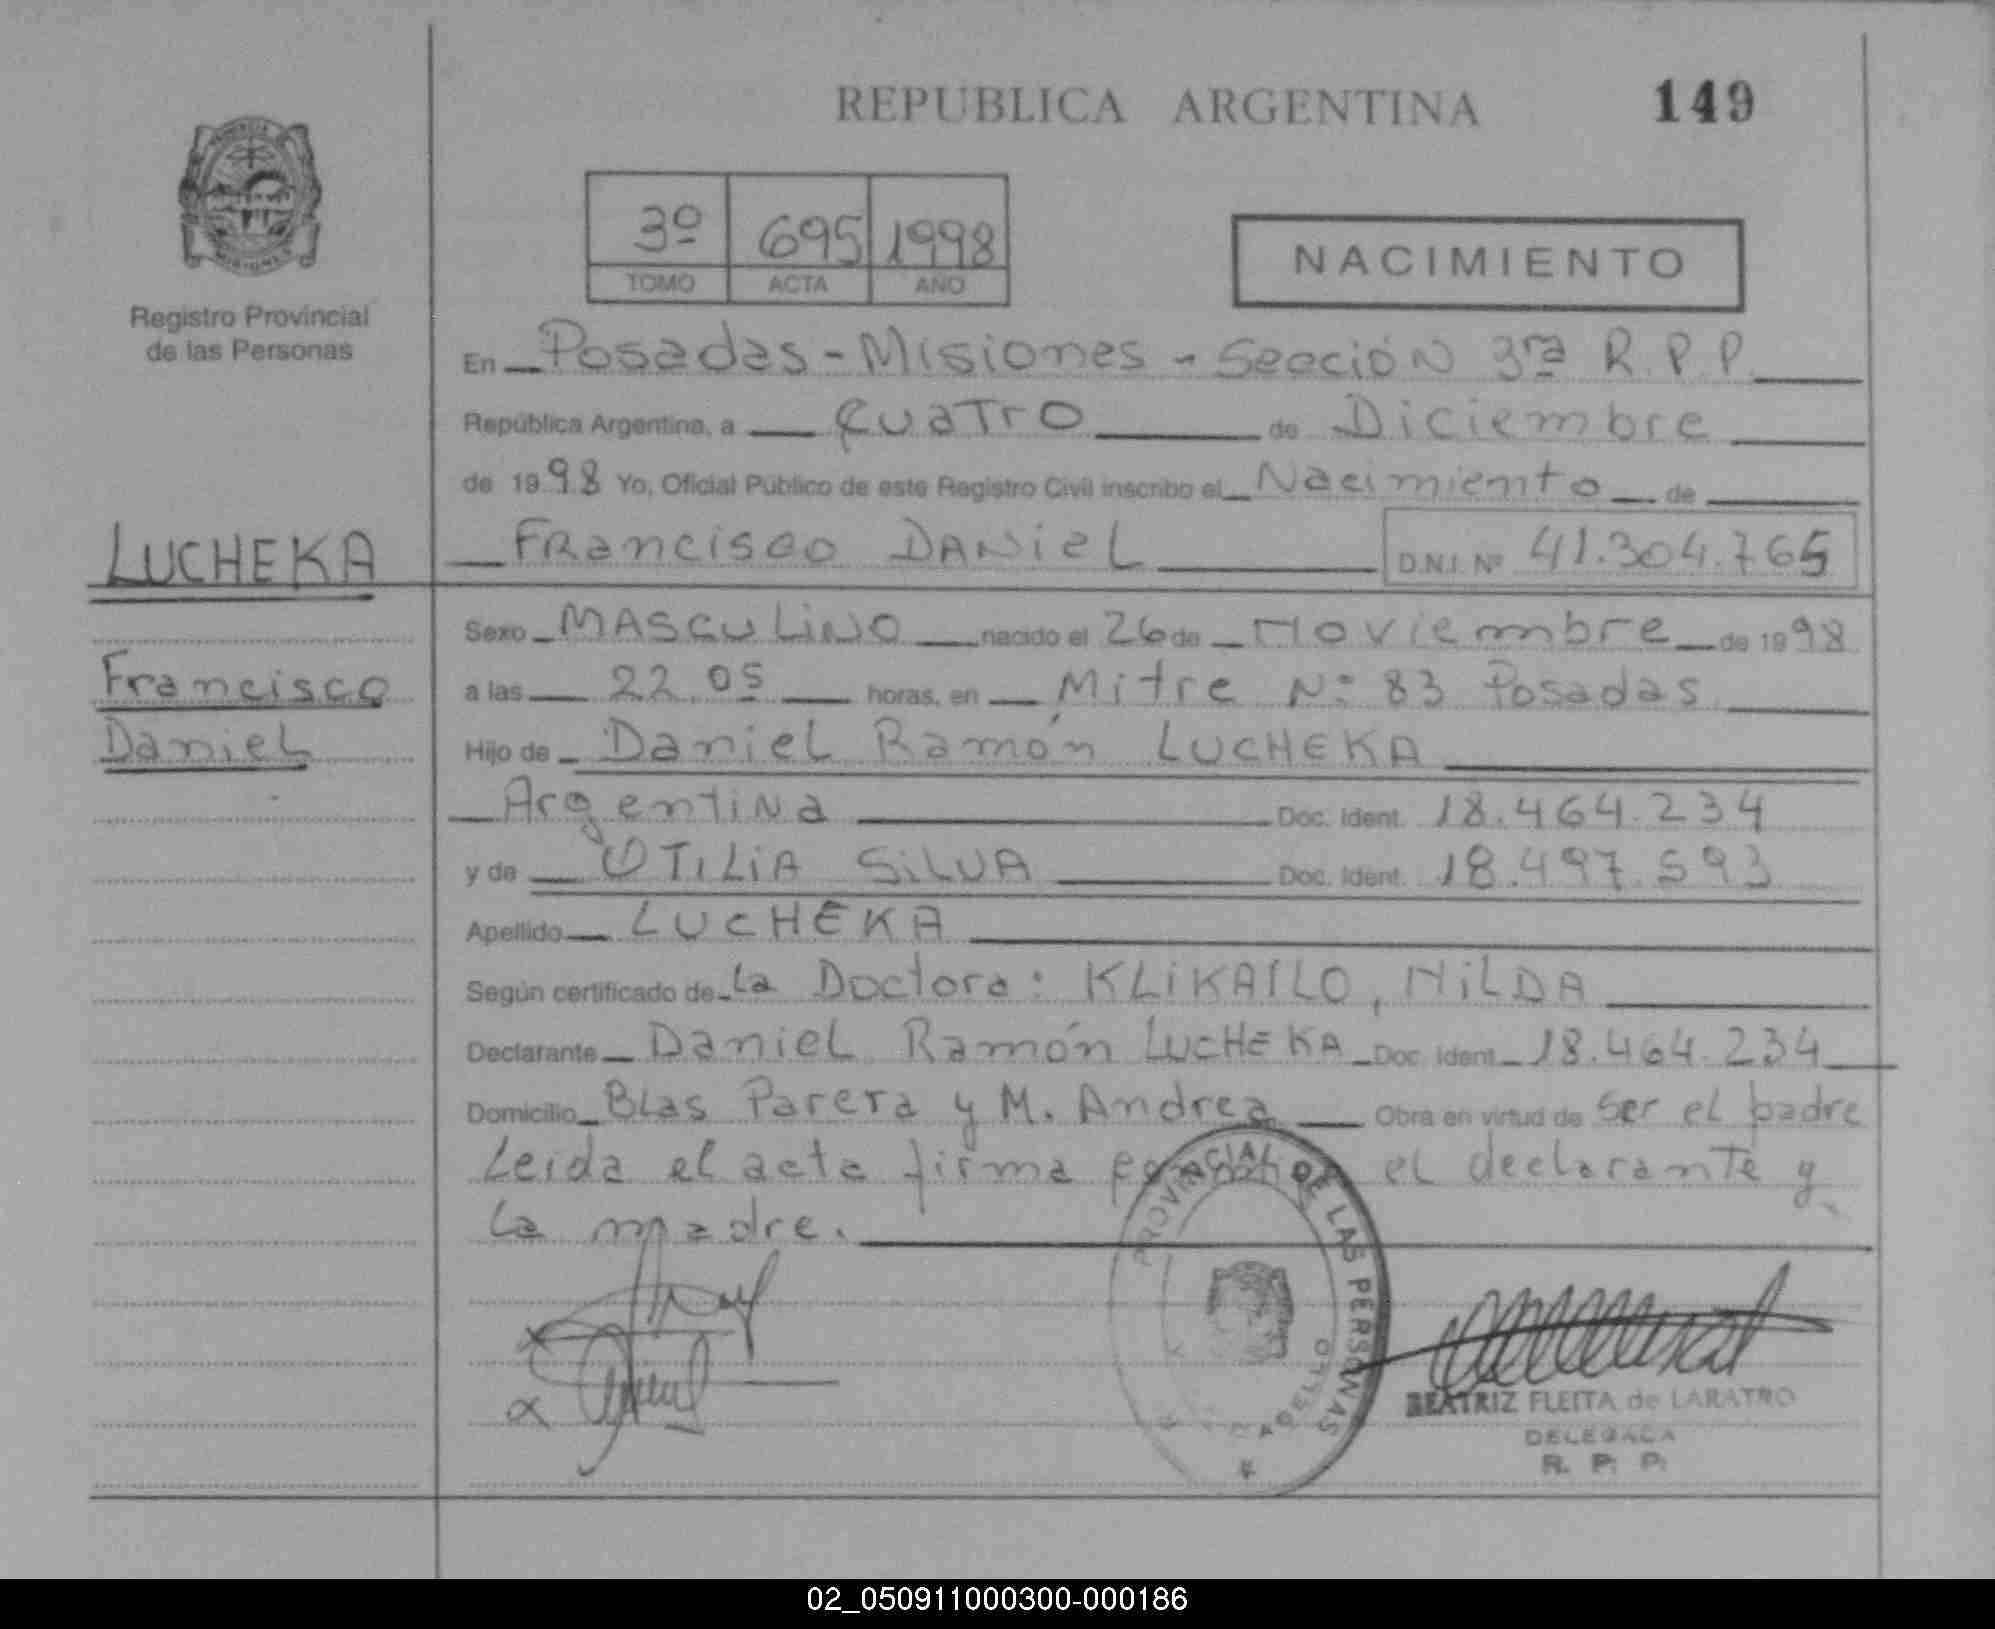 REPUBLICA ARGENTINA 149
3º 695 1998
TOMO ACTA AÑO
NACIMIENTO
MISIONES
Registro Provincial
de las Personas
En Posadas - Misiones - Sección 3ra R.P.P.
República Argentina, a Cuatro de Diciembre
de 1998 Yo, Oficial Público de este Registro Civil inscribo el Nacimiento de
LUCHEKA
Francisco DANieL D.N.I. Nº 41.304.765
Sexo MASCULiNO nacido el 26 de Noviembre de 1998
Francisco
a las 22.05 horas, en Mitre Nº 83 Posadas
Daniel
Hijo de Daniel Ramón LUCHEKA
Argentina Doc. Ident. 18.464.234
y de OTILiA SiLVA Doc. Ident. 18.497.593
Apellido LUCHEKA
Según certificado de La Doctora: KLiKAILO, NiLDA
Declarante Daniel Ramón LUCHEKA Doc. Ident. 18.464.234
Domicilio Blas Parera y M. Andrea Obra en virtud de ser el padre
Leida el acta firma el declarante y
la madre.
PROVINCIAL DE LAS PERSONAS
BEATRIZ FLEITA de LARATRO
DELEGADA
R. P. P.
02_050911000300-000186